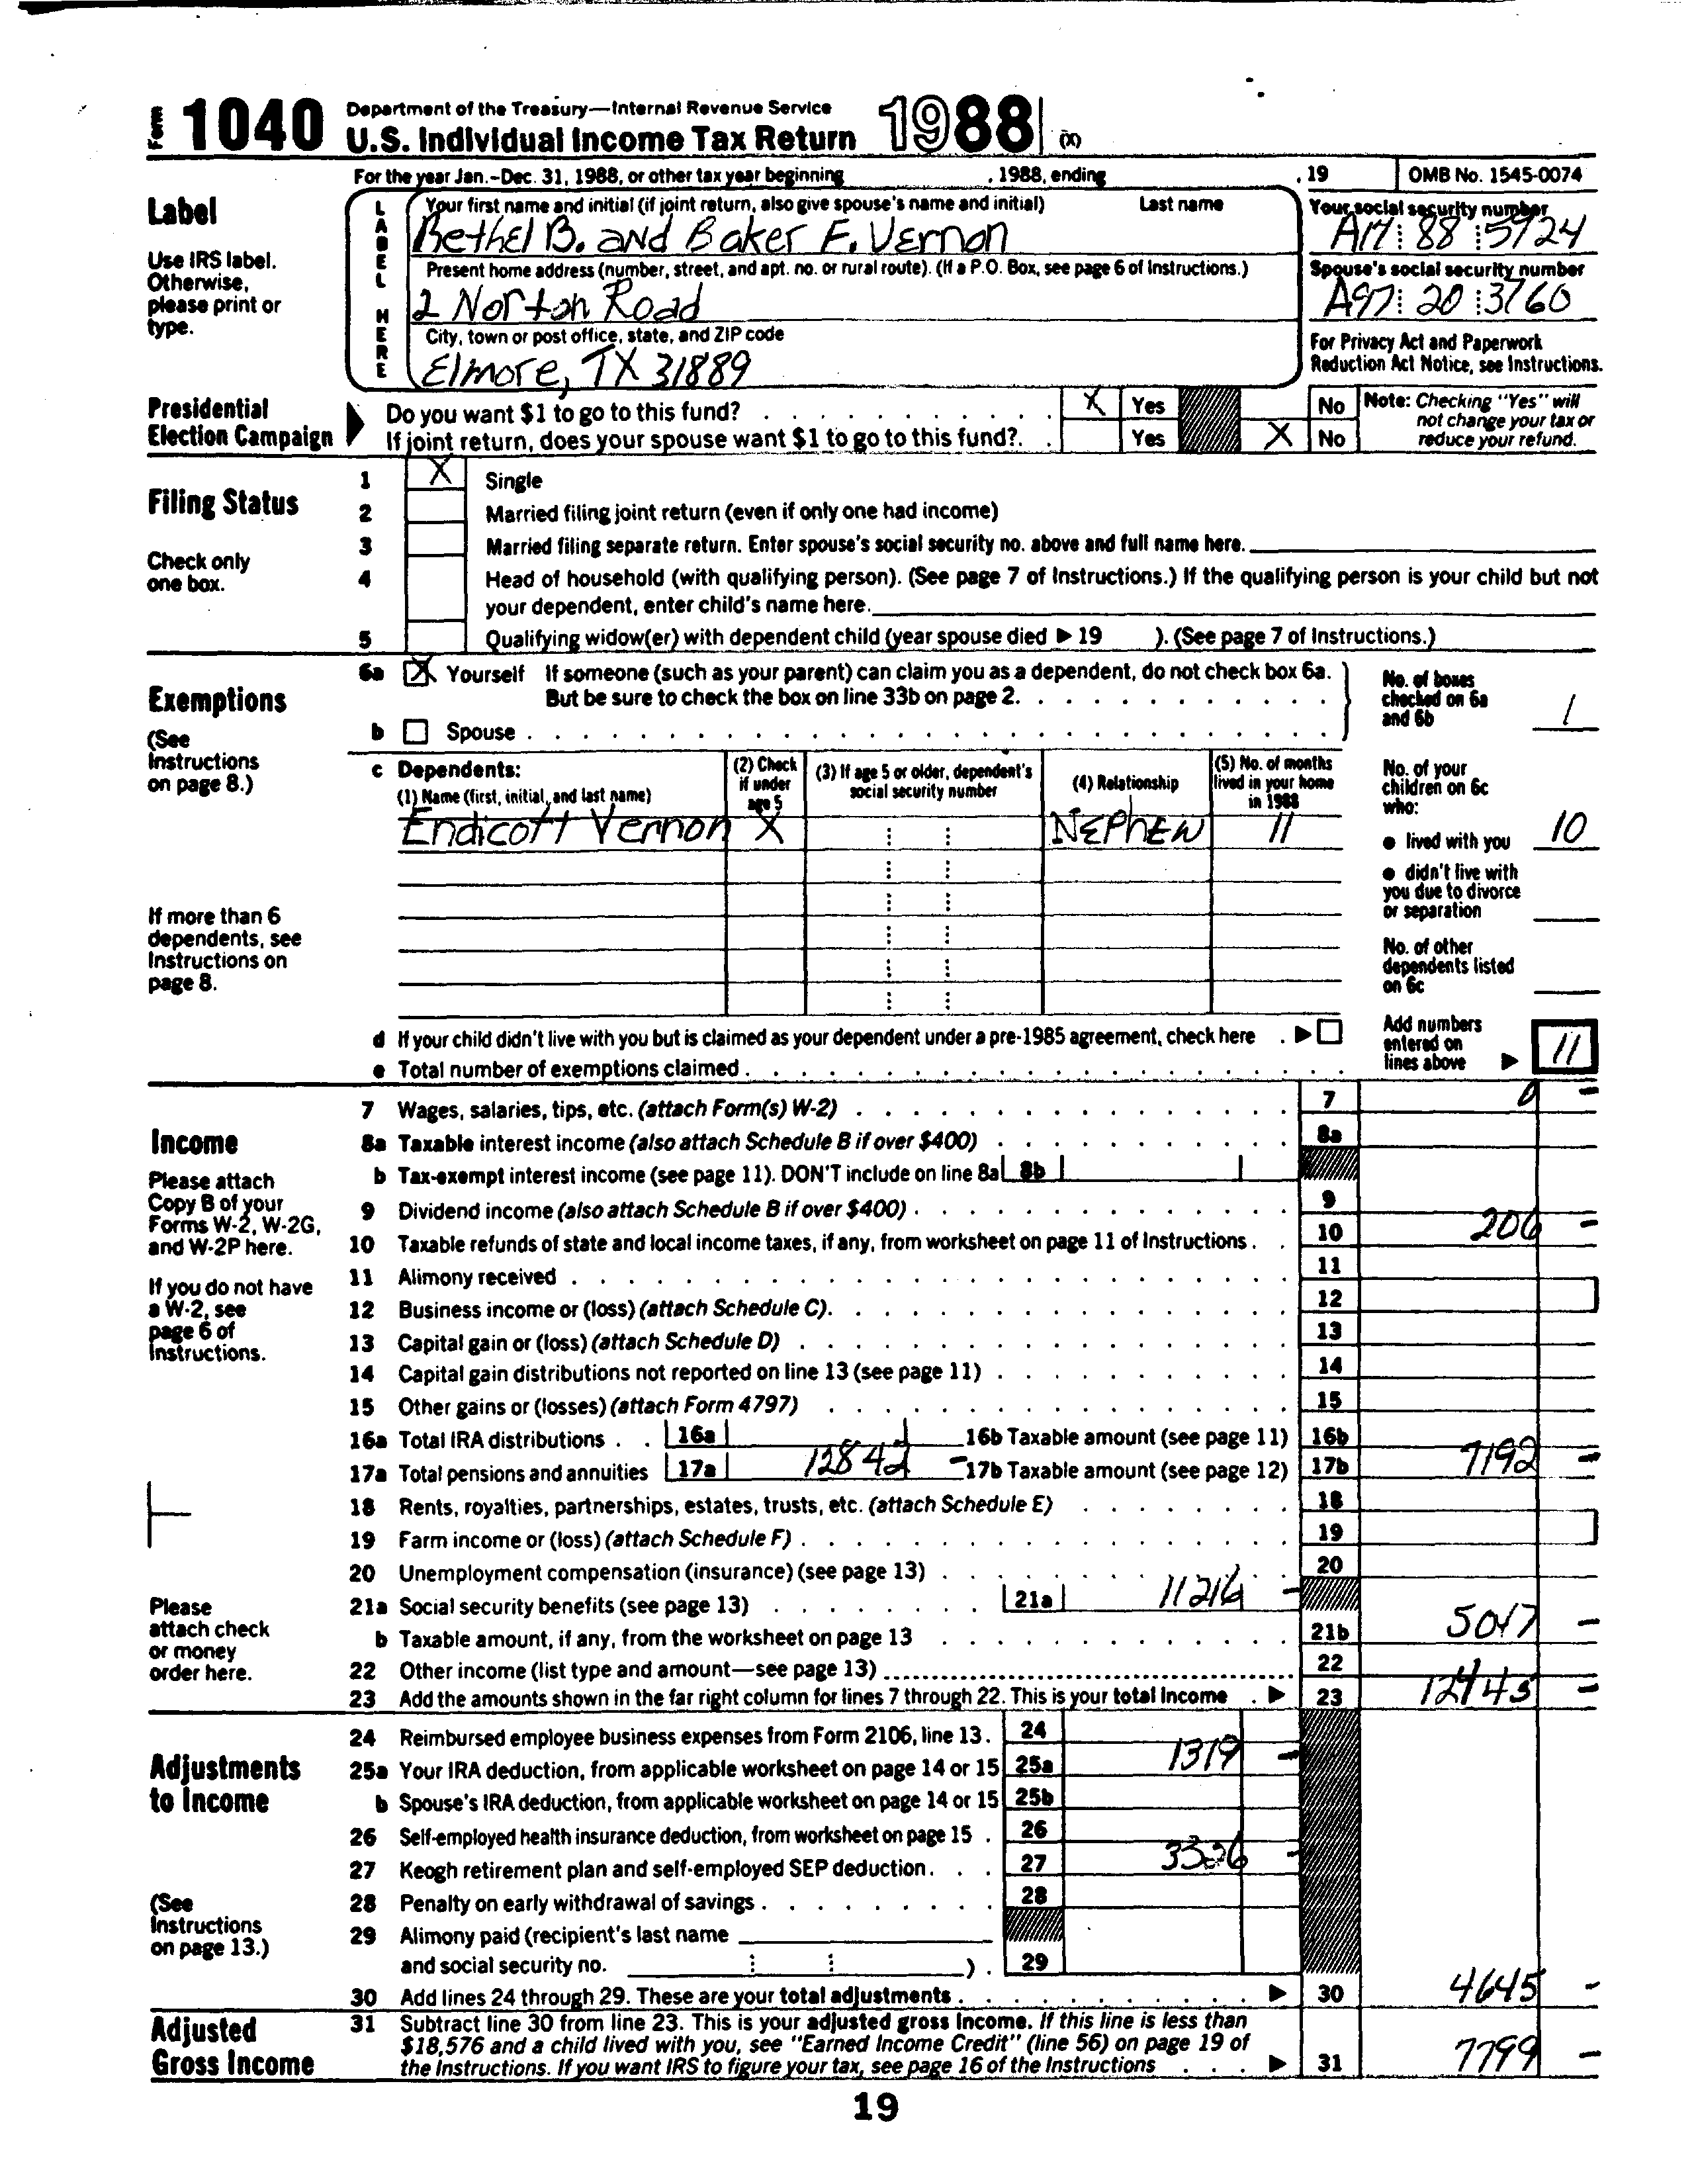 Form 1040 Department of the Treasury—Internal Revenue Service
U.S. Individual Income Tax Return 1988 (X)
For the year Jan.-Dec. 31, 1988, or other tax year beginning , 1988, ending , 19 OMB No. 1545-0074
Label
Use IRS label.
Otherwise,
please print or
type.
LABEL HERE
Your first name and initial (if joint return, also give spouse's name and initial) Last name
Bethel B. and Baker F. Vernon
Your social security number
A17 88 5924
Present home address (number, street, and apt. no. or rural route). (If a P.O. Box, see page 6 of Instructions.)
2 Norton Road
Spouse's social security number
A97 20 3760
City, town or post office, state, and ZIP code
Elmore, TX 31889
For Privacy Act and Paperwork
Reduction Act Notice, see Instructions.
Presidential
Election Campaign
Do you want $1 to go to this fund? X Yes No
If joint return, does your spouse want $1 to go to this fund?. Yes X No
Note: Checking "Yes" will
not change your tax or
reduce your refund.
Filing Status
Check only
one box.
1 X Single
2 Married filing joint return (even if only one had income)
3 Married filing separate return. Enter spouse's social security no. above and full name here.
4 Head of household (with qualifying person). (See page 7 of Instructions.) If the qualifying person is your child but not
your dependent, enter child's name here.
5 Qualifying widow(er) with dependent child (year spouse died ▶ 19 ). (See page 7 of Instructions.)
Exemptions
(See
Instructions
on page 8.)
6a X Yourself If someone (such as your parent) can claim you as a dependent, do not check box 6a.
But be sure to check the box on line 33b on page 2.
b Spouse
No. of boxes
checked on 6a
and 6b 1
c Dependents:
(1) Name (first, initial, and last name)
(2) Check
if under
age 5
(3) If age 5 or older, dependent's
social security number
(4) Relationship
(5) No. of months
lived in your home
in 1988
Endicott Vernon X NEPhEW 11
No. of your
children on 6c
who:
● lived with you 10
● didn't live with
you due to divorce
or separation
No. of other
dependents listed
on 6c
If more than 6
dependents, see
Instructions on
page 8.
d If your child didn't live with you but is claimed as your dependent under a pre-1985 agreement, check here . ▶
e Total number of exemptions claimed
Add numbers
entered on
lines above ▶ 11
Income
Please attach
Copy B of your
Forms W-2, W-2G,
and W-2P here.
If you do not have
a W-2, see
page 6 of
Instructions.
Please
attach check
or money
order here.
7 Wages, salaries, tips, etc. (attach Form(s) W-2) 7 0 –
8a Taxable interest income (also attach Schedule B if over $400) 8a
b Tax-exempt interest income (see page 11). DON'T include on line 8a 8b
9 Dividend income (also attach Schedule B if over $400) 9
10 Taxable refunds of state and local income taxes, if any, from worksheet on page 11 of Instructions 10 206 –
11 Alimony received 11
12 Business income or (loss) (attach Schedule C) 12
13 Capital gain or (loss) (attach Schedule D) 13
14 Capital gain distributions not reported on line 13 (see page 11) 14
15 Other gains or (losses) (attach Form 4797) 15
16a Total IRA distributions 16a 16b Taxable amount (see page 11) 16b
17a Total pensions and annuities 17a 12842 – 17b Taxable amount (see page 12) 17b 7192 –
18 Rents, royalties, partnerships, estates, trusts, etc. (attach Schedule E) 18
19 Farm income or (loss) (attach Schedule F) 19
20 Unemployment compensation (insurance) (see page 13) 20
21a Social security benefits (see page 13) 21a 11216 –
b Taxable amount, if any, from the worksheet on page 13 21b 5047 –
22 Other income (list type and amount—see page 13) 22
23 Add the amounts shown in the far right column for lines 7 through 22. This is your total income ▶ 23 12445 –
Adjustments
to Income
(See
Instructions
on page 13.)
24 Reimbursed employee business expenses from Form 2106, line 13 24
25a Your IRA deduction, from applicable worksheet on page 14 or 15 25a 1319 –
b Spouse's IRA deduction, from applicable worksheet on page 14 or 15 25b
26 Self-employed health insurance deduction, from worksheet on page 15 26
27 Keogh retirement plan and self-employed SEP deduction 27 3326 –
28 Penalty on early withdrawal of savings 28
29 Alimony paid (recipient's last name
and social security no. ) 29
30 Add lines 24 through 29. These are your total adjustments ▶ 30 4645 –
Adjusted
Gross Income
31 Subtract line 30 from line 23. This is your adjusted gross income. If this line is less than
$18,576 and a child lived with you, see "Earned Income Credit" (line 56) on page 19 of
the Instructions. If you want IRS to figure your tax, see page 16 of the Instructions ▶ 31 7799 –
19